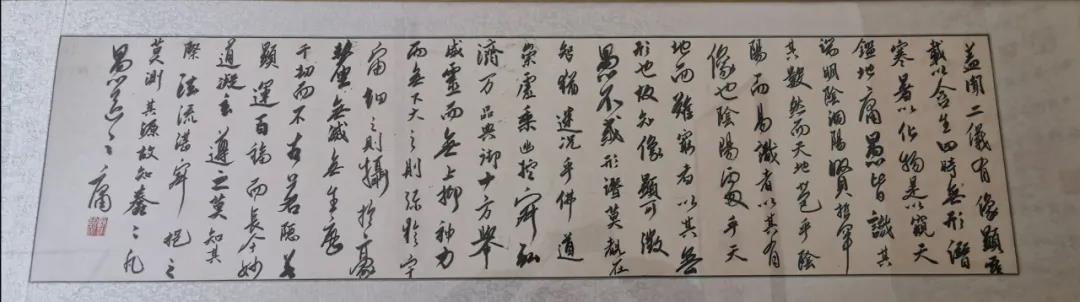 蓋聞二儀有像顯覆
載以含生四時無形潛
寒暑以化物是以窺天
鑑地庸愚皆識其
端明陰洞陽賢哲罕
其數然而天地苞乎陰
陽而易識者以其有
像也陰陽處乎天
地而難窮者以其無
形也故知像顯可徵
愚不惑形潛莫覩在
智猶迷況乎佛道
崇虛乘幽控寂弘
濟万品典御十方舉
威靈而無上抑神力
而無下大之則彌於宇
宙細之則攝於豪
釐無滅無生歷
千劫而不古若隱若
顯運百福而長今妙
道凝玄遵之莫知其
際法流湛寂挹之
莫測其源故知蠢〻凡
愚區〻庸